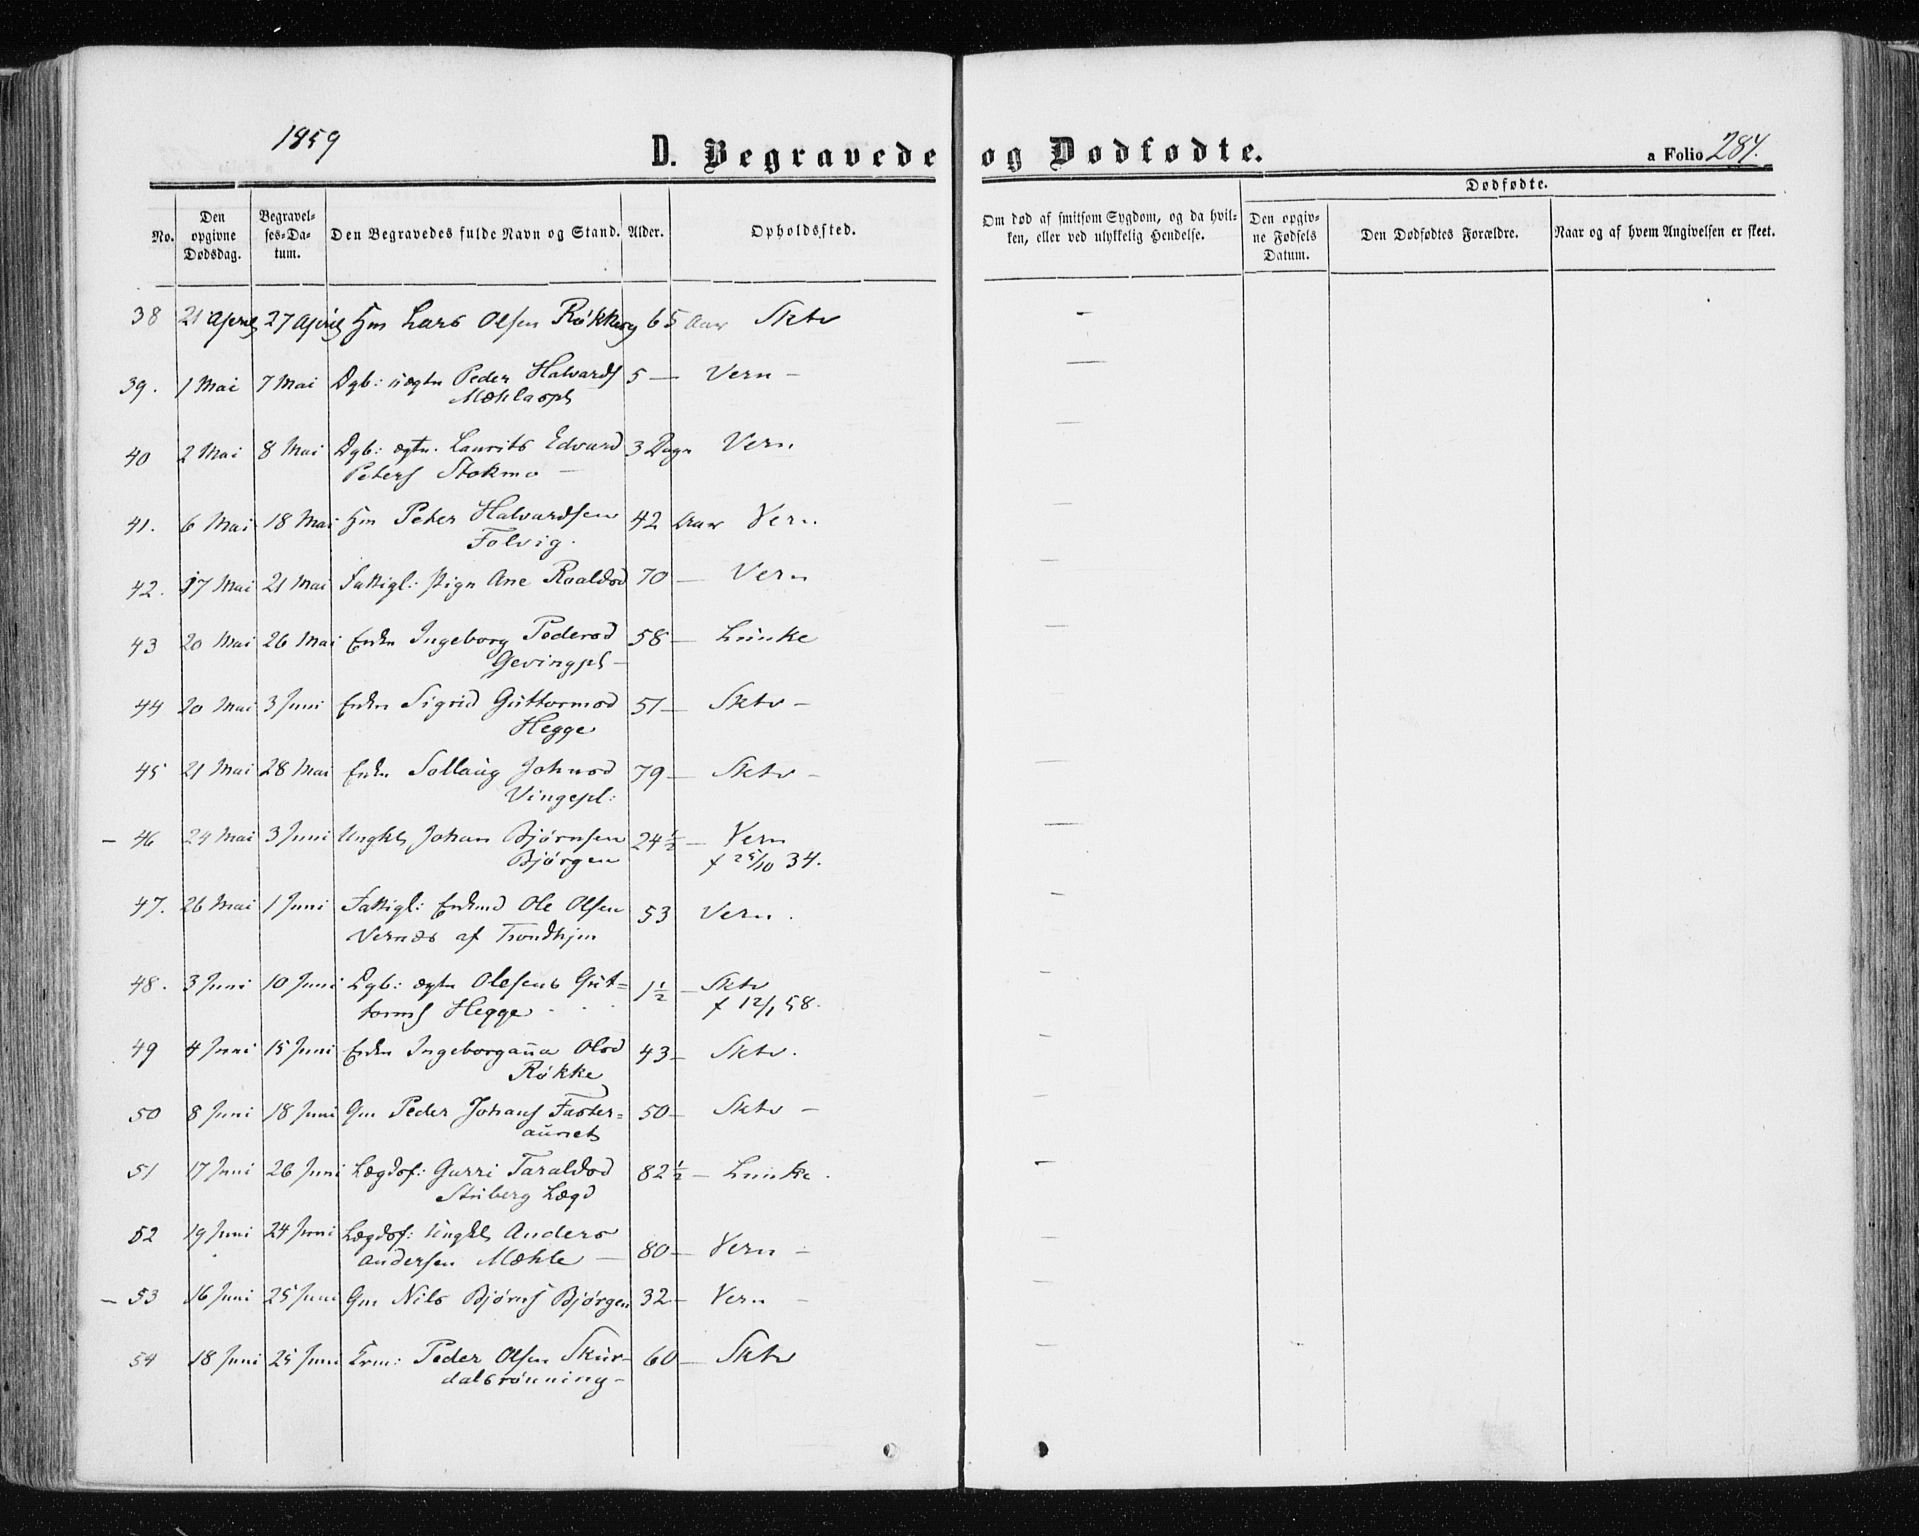 1859
D. Begravede og Dødfødte.
a Folio 287.
No.
Den opgivne Dødsdag.
Begravelses-Datum.
Den Begravedes fulde Navn og Stand.
Alder.
Opholdssted.
Om død af smitsom Sygdom, og da hvilken, eller ved ulykkelig Hendelse.
Dødfødte.
Den opgivne Fødsels Datum.
Den Dødfødtes Forældre.
Naar og af hvem Angivelsen er skeet.
38 21 April 27 April Hm Lars Olsen Røkkeeng 65 Aar Sktv —
39. 1 Mai 7 Mai Dgb: uægtn Peder Halvards 5 — Vern —
Mæhlaspl
40 2 Mai 8 Mai Dgb: ægtn. Laurits Edvard 3 Dage Vern
Peters Stokmo —
41. 6 Mai 18 Mai Hm Peter Halvardsen 42 Aar Vern
Folvig.
42. 17 Mai 21 Mai Fattigl: Pige Ane Roaldsd 70 — Vern
43 20 Mai 26 Mai Enke Ingeborg Pedersd 58 — Lånke
Gevingpl —
44 20 Mai 3 Juni Enke Sigrid Guttormsd 51 — Sktv —
Hegge
45 21 Mai 28 Mai Enke Sollaug Johnsd 79 — Sktv —
Vingepl:
— 46 24 Mai 3 Juni Ungkl Johan Bjørnsen 24 1/2 — Vern
Bjørgen f 25/10 34.
47. 26 Mai 1 Juni Fattigl: Enkmd Ole Olsen 53 Vern.
Vernæs af Trondhjm
48. 3 Juni 10 Juni Dgb: ægtn Olesens Gut=
1 1/2 — Sktv
torms Hegge f 12/1 58.
49 4 Juni 15 Juni Enke Ingeborganna Olsd 43 — Sktv.
Røkke
50 8 Juni 18 Juni Gm Peder Johans Faster= 50 — Sktv —
aunet
51 17 Juni 26 Juni Lægdsf: Gurri Taraldsd 82 1/2 — Lånke.
Stuberg Lægd
52 19 Juni 24 Juni Lægdsf: Ungkl Anders
Andersen Mæhle — 80 — Vern —
— 53 16 Juni 25 Juni Gm Nils Bjørns Bjørgen 32 — Vern —
54 18 Juni 25 Juni Peder Olsen Skur= 60 — Sktv
dalsrønning —